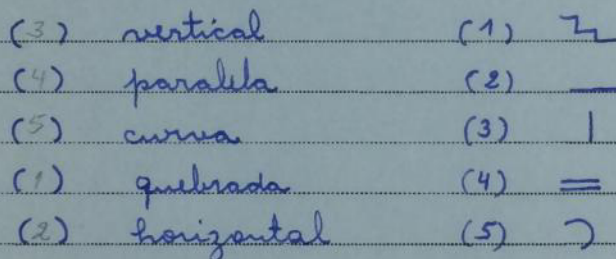 (3) vertical (1)
(4) paralela (2)
(5) curva (3)
(1) quebrada (4)
(2) horizontal (5)